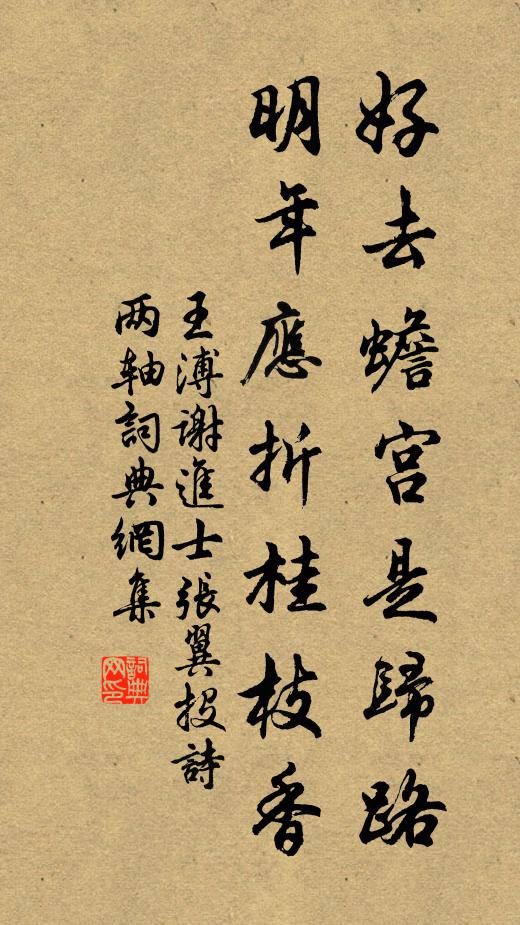 好去蟾宫是歸路
明年應折桂枝香
王溥谢進士張翼投詩
两轴詞典網集
詞典網印